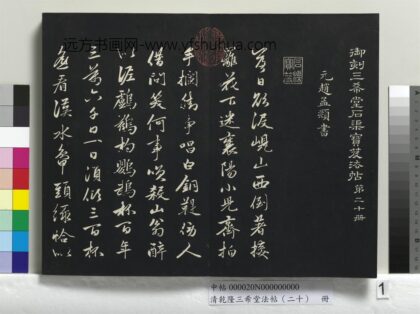 远方书画网-www.yfshuhua.com
御刻三希堂石渠寶笈法帖第二十冊
元趙孟頫書
落日欲沒峴山西倒著接
䍦花下迷襄陽小兒齊拍
手攔街爭唱白銅鞮傍人
借問笑何事笑殺山翁醉
似泥鸕鶿杓鸚鵡杯百年
三萬六千日一日須傾三百杯
遙看漢水鴨頭綠恰似
中帖 000020N000000000
清乾隆三希堂法帖(二十) 冊
1